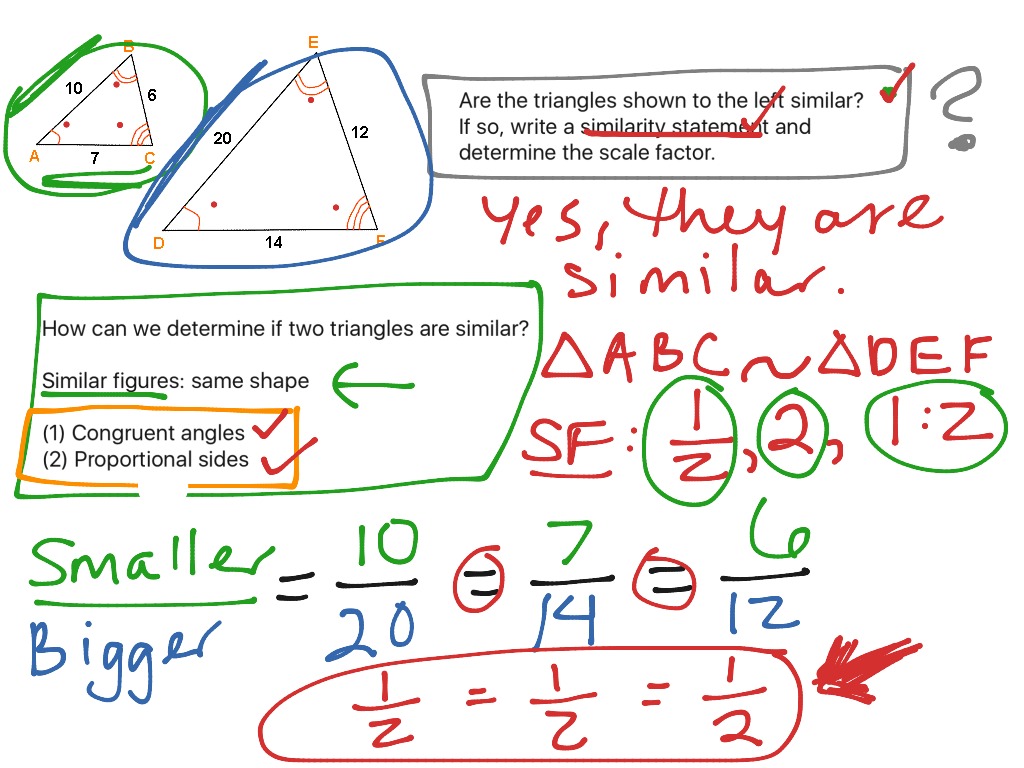 B
10
6
A
7
C
E
20
12
D
14
F
Are the triangles shown to the left similar?
If so, write a similarity statement and
determine the scale factor.
?
Yes, they are
similar.
How can we determine if two triangles are similar?
Similar figures: same shape
(1) Congruent angles
(2) Proportional sides
△ABC ~ △DEF
SF: 1/2, 2, 1:2
Smaller/Bigger = 10/20 = 7/14 = 6/12
1/2 = 1/2 = 1/2